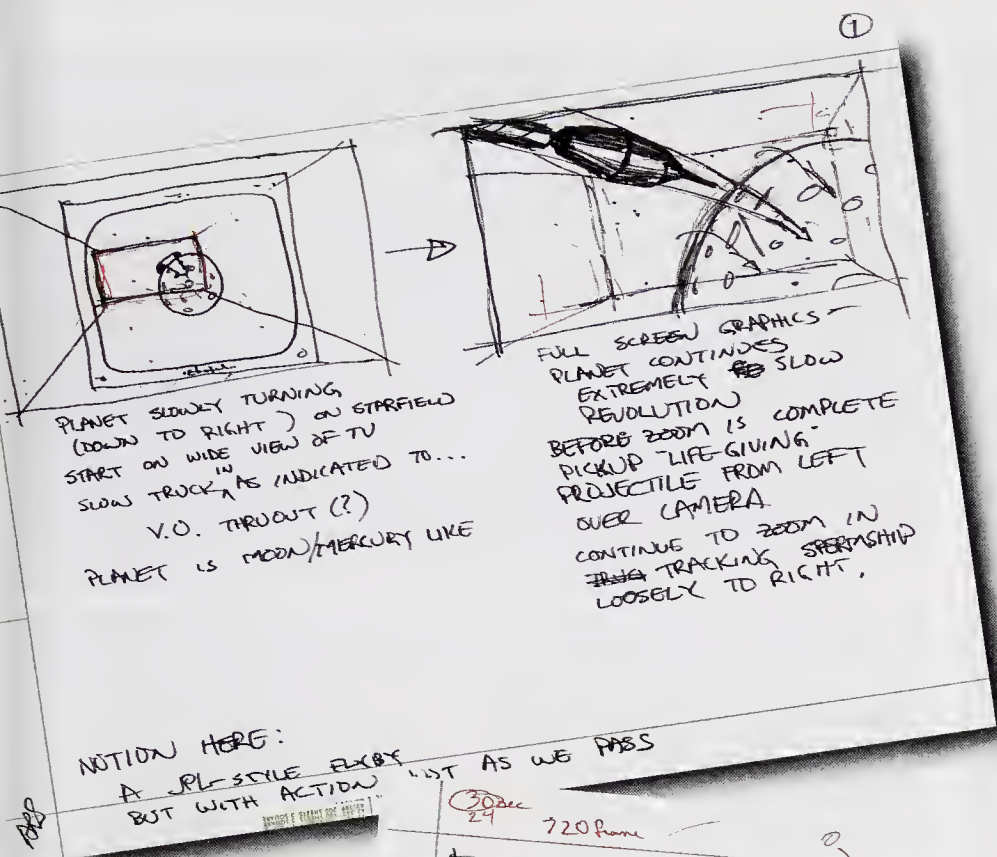 1
PLANET SLOWLY TURNING
(DOWN TO RIGHT) ON STARFIELD
START ON WIDE VIEW OF TV
SLOW TRUCK IN AS INDICATED TO...
V.O. THRUOUT (?)
PLANET IS MOON/MERCURY LIKE
FULL SCREEN GRAPHICS -
PLANET CONTINUES
EXTREMELY SLOW
REVOLUTION
BEFORE ZOOM IS COMPLETE
PICKUP "LIFE-GIVING"
PROJECTILE FROM LEFT
OVER CAMERA
CONTINUE TO ZOOM IN
TRACKING SPERMSHIP
LOOSELY TO RIGHT.
NOTION HERE:
A JPL-STYLE FLYBY
BUT WITH ACTION AS WE PASS
30 sec
24
720 frame